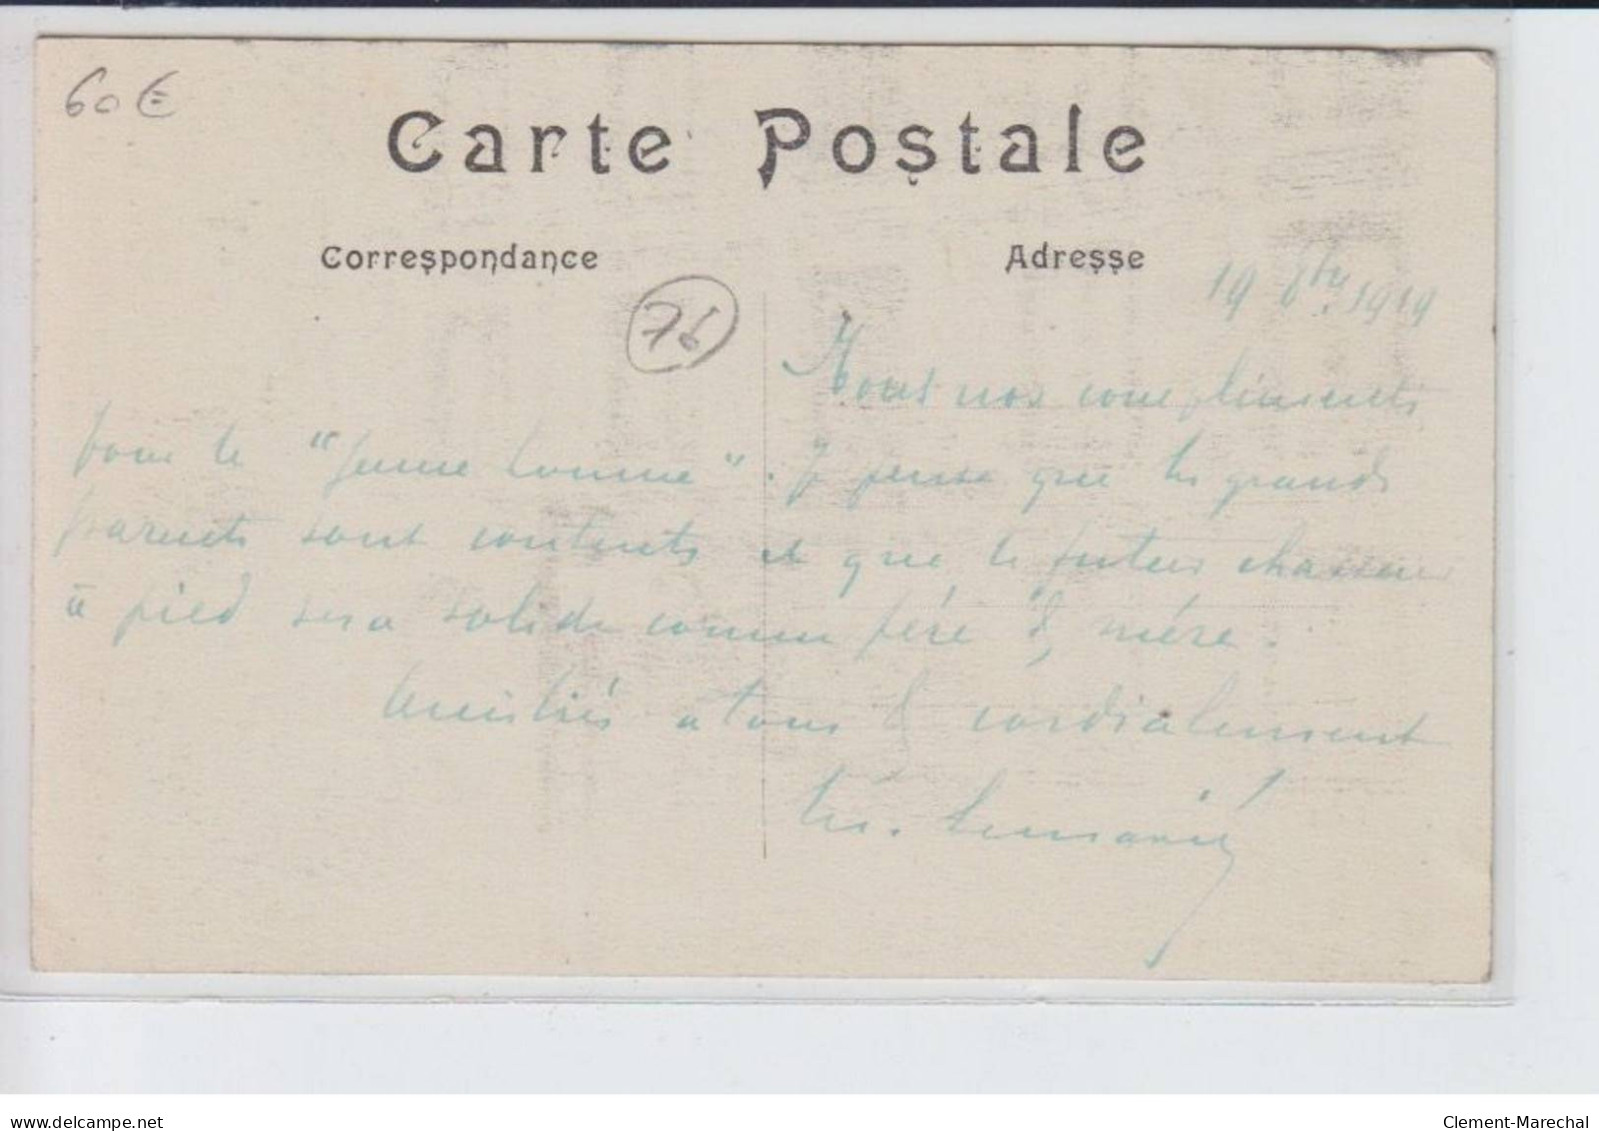 60 €
Carte Postale
Correspondance
Adresse
19 8bre 1919
76
Tous nos compliments
pour le "jeune homme". Je pense que les grands
parents sont contents et que le futur chasseur
à pied sera solide comme père & mère.
Amitiés à tous & cordialement
delcampe.net
Clement-Marechal